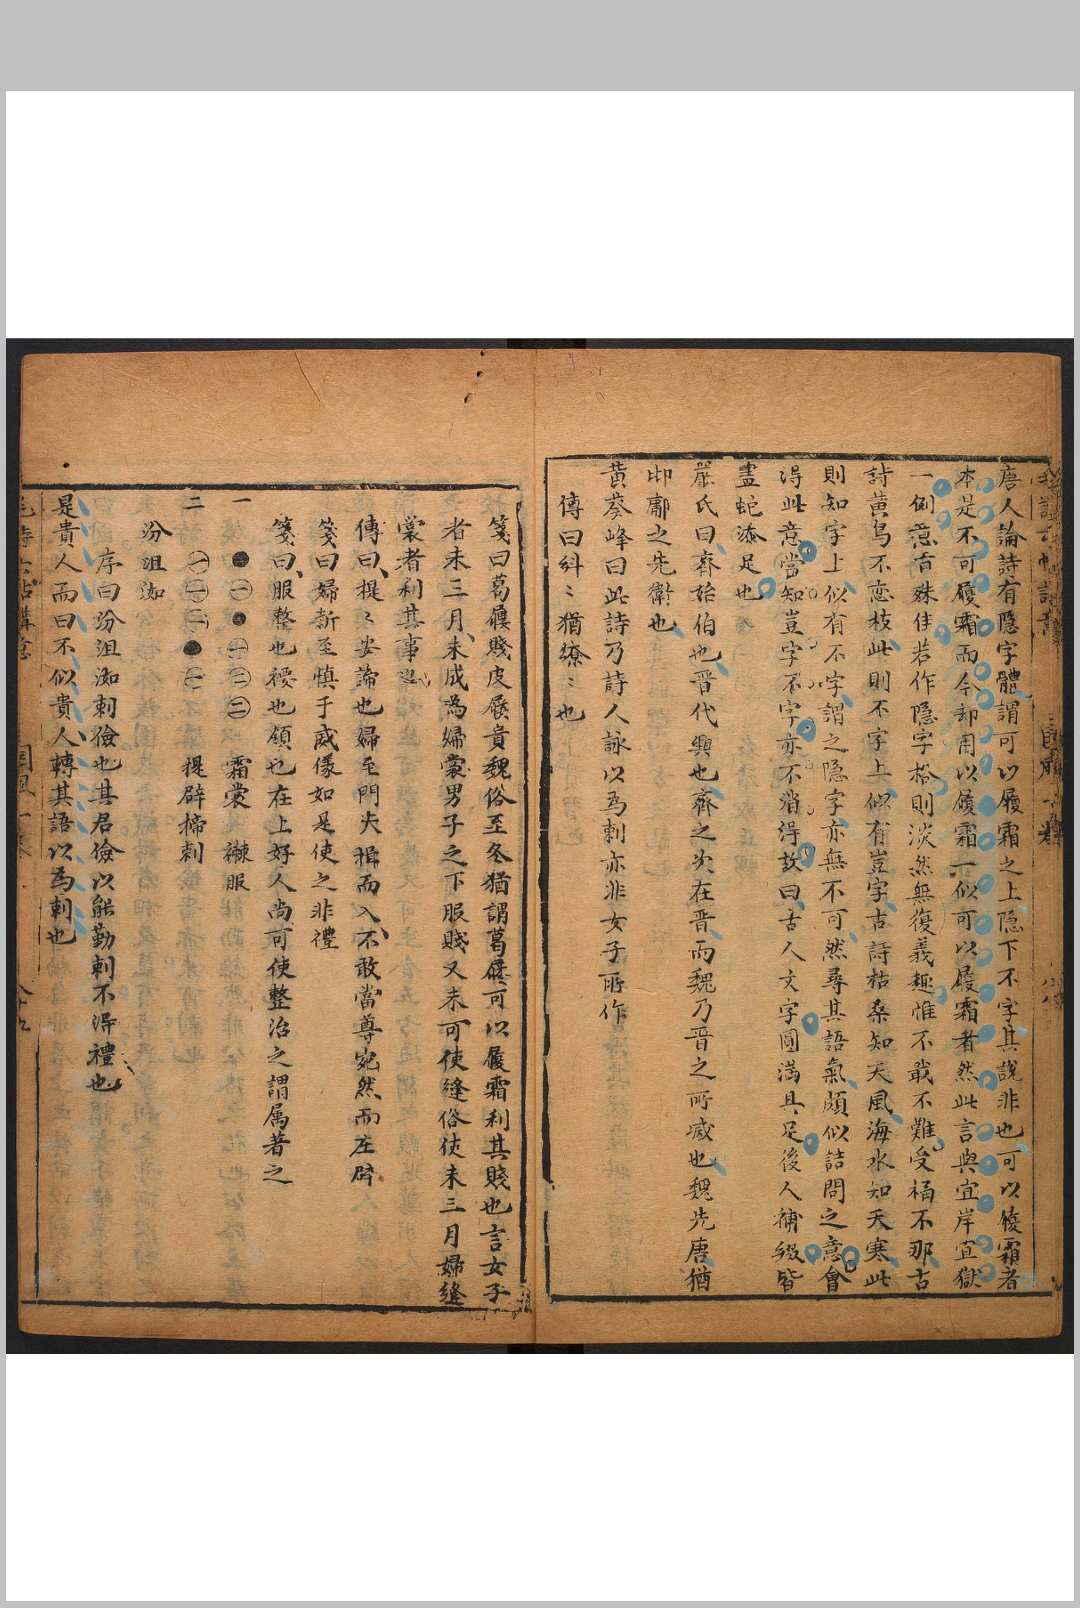 唐人論詩有隱字體謂可以履霜之上隱下不字其說非也可以履霜者
本是不可履霜而今却用以履霜一似可以履霜者然此言與宜岸宜獄
一例意旨殊佳若作隱字格則淡然無復義趣惟不戢不難受福不那古
詩黃鳥不戀枝此則不字上似有豈字古詩枯桑知天風海水知天寒此
則知字上似有不字謂之隱字亦無不可然尋其語氣頗似詰問之意會
得此意當知豈字不字亦不消得故曰古人文字圓滿具足後人補綴皆
畫蛇添足也
嚴氏曰齊始伯也晋代興也齊之次在晋而魏乃晋之所滅也魏先唐猶
邶鄘之先衛也
黃葵峰曰此詩乃詩人詠以為刺亦非女子所作
傳曰糾〻猶繚〻也
箋曰葛屨賤皮屨貴魏俗至冬猶謂葛屨可以履霜利其賤也言女子
者未三月未成為婦裳男子之下服賤又未可使縫俗使未三月婦縫
裳者利其事也
傳曰提〻安諦也婦至門夫揖而入不敢當尊宛然而左辟
箋曰婦新至慎于威儀如是使之非禮
箋曰服整也褄也領也在上好人尚可使整治之謂属著之
一 ●㊀●㊀㊁㊁ 霜裳 襋服
二 ㊀㊀㊁●㊀ 提辟揥刺
汾沮洳
序曰汾沮洳刺儉也其君儉以能勤刺不得禮也
是貴人而曰不似貴人轉其語以為刺也